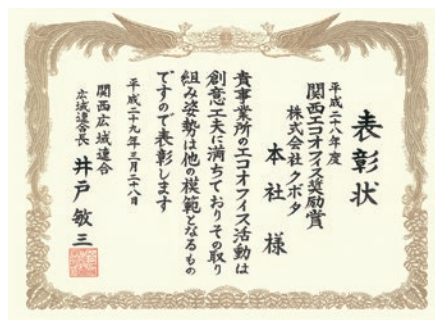 表彰状
平成二十八年度
関西エコオフィス奨励賞
株式会社クボタ
本社 様
貴事業所のエコオフィス活動は
創意工夫に満ちておりその取り
組み姿勢は他の模範となるもの
ですので表彰します
平成二十九年三月二十八日
関西広域連合
広域連合長 井戸敏三